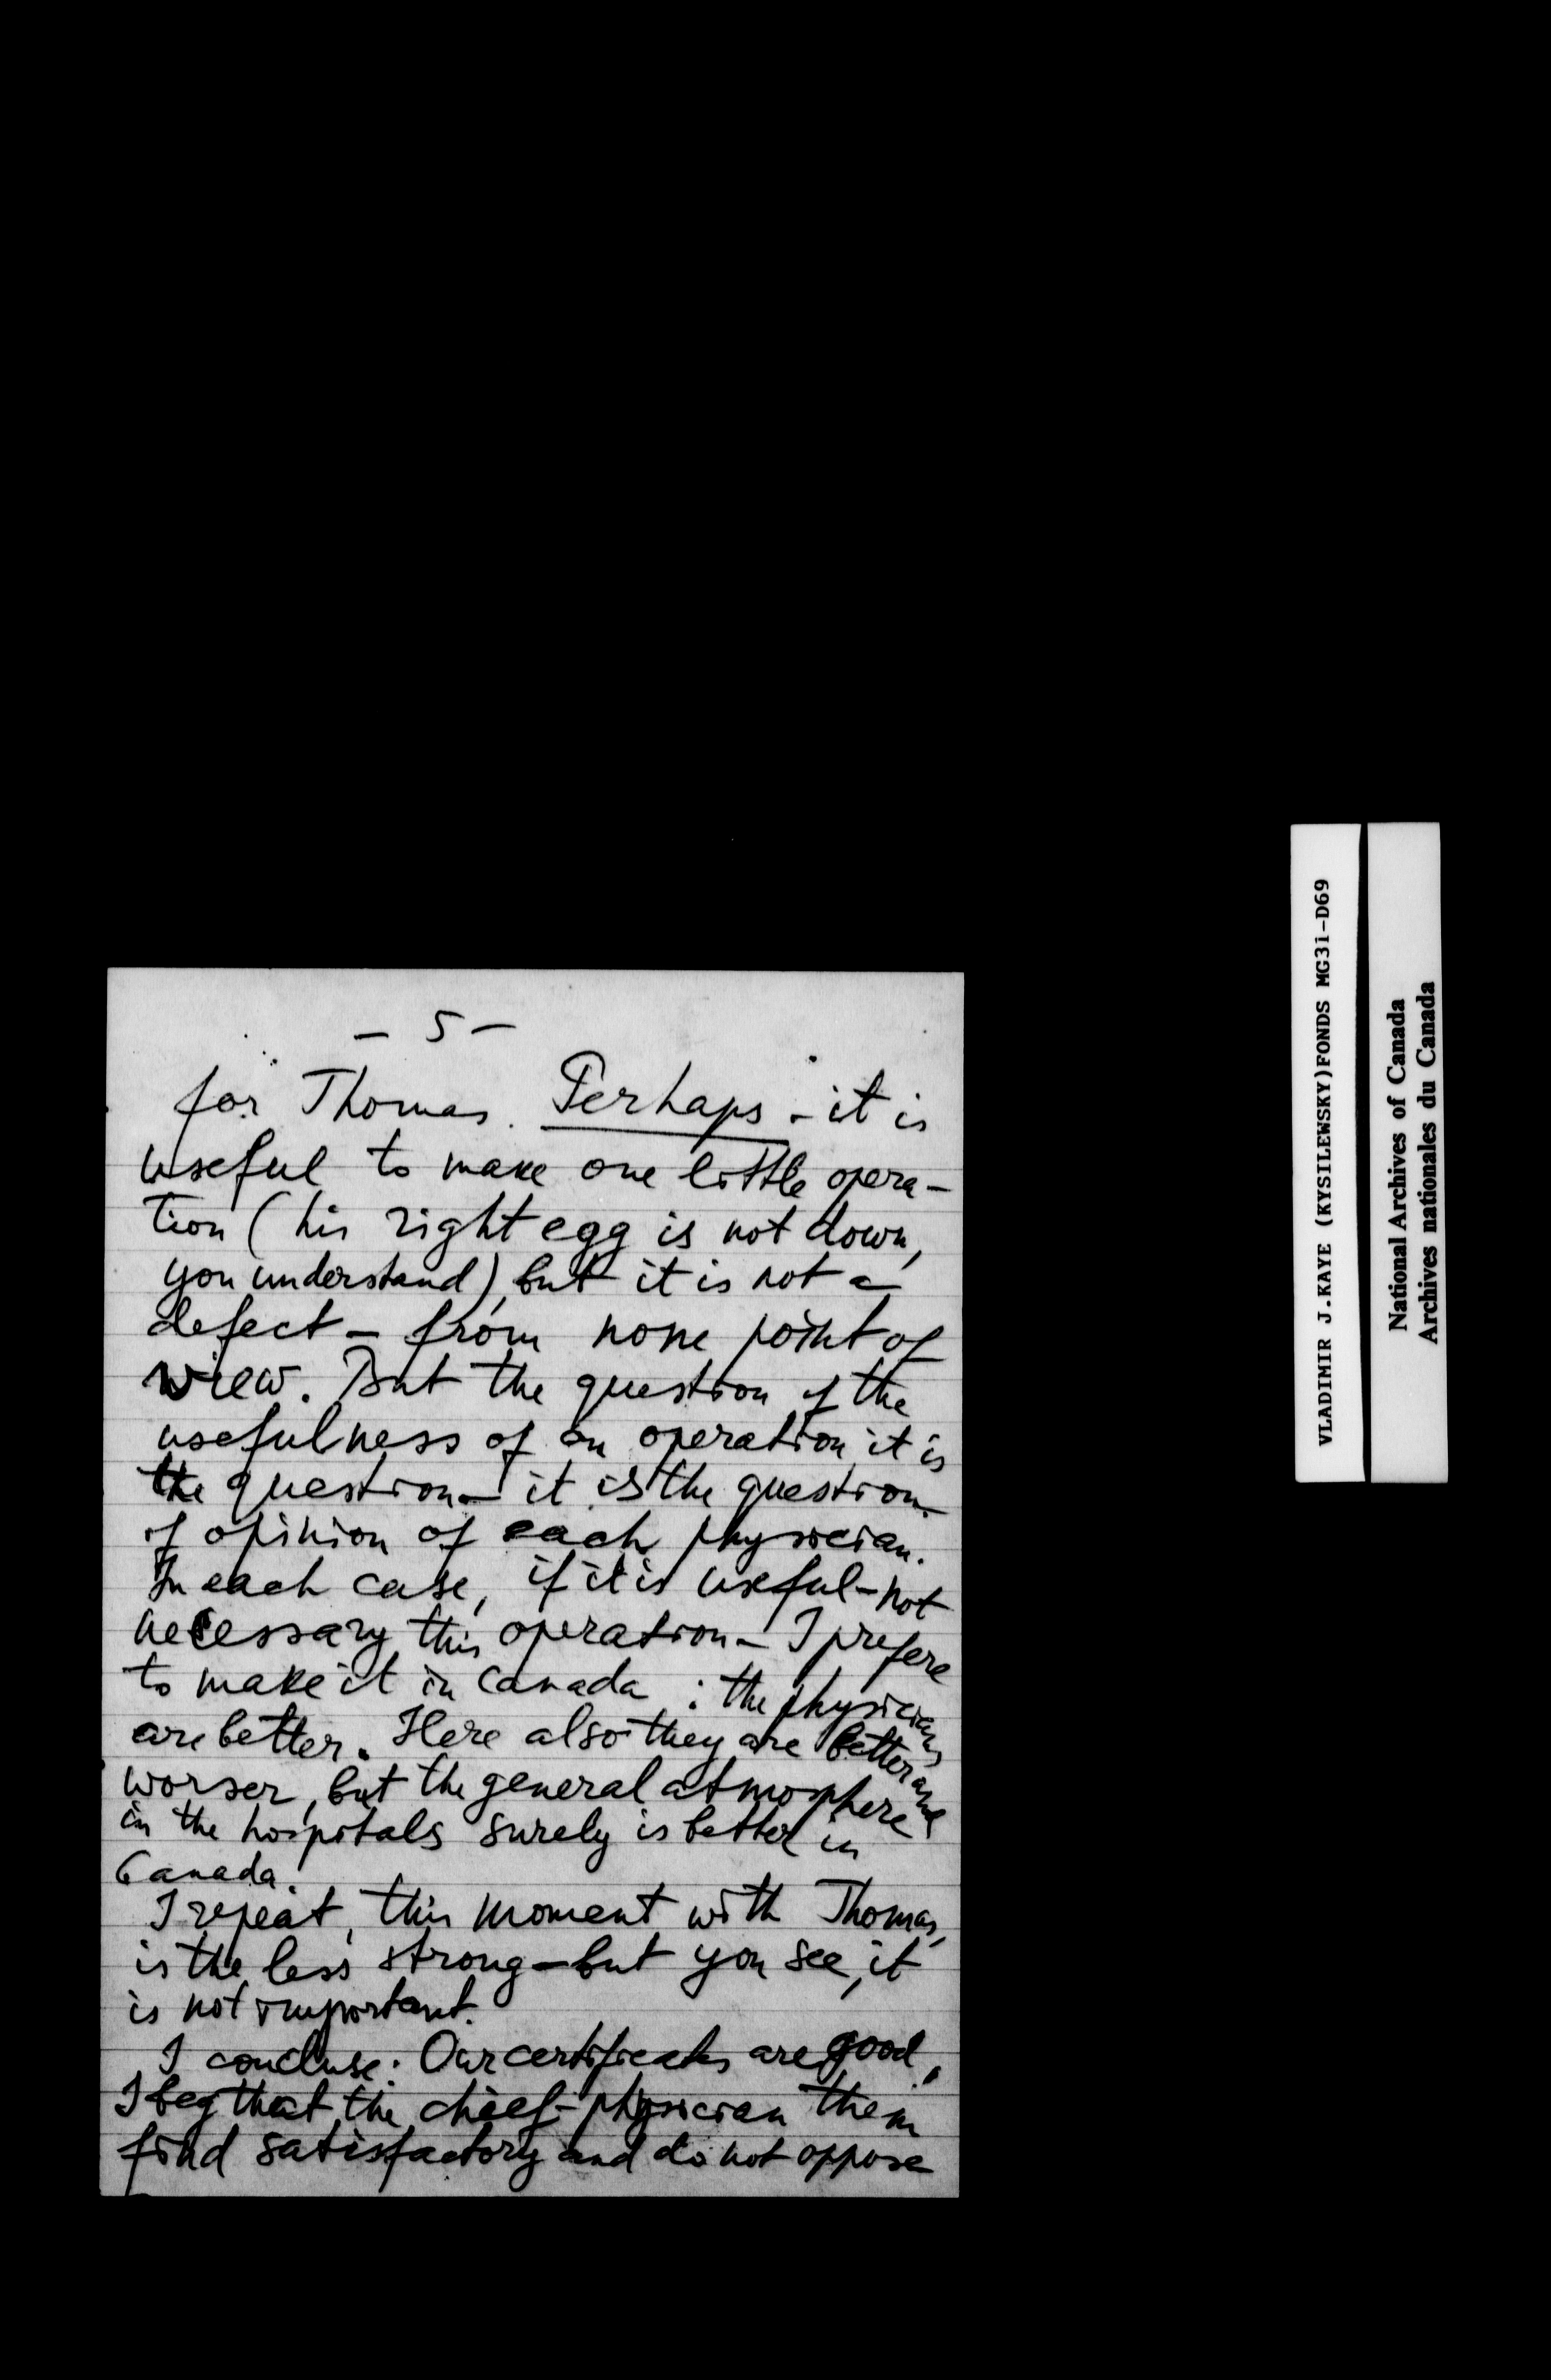 - 5 -
for Thomas. Perhaps - it is
useful to make one little opera-
tion (his right egg is not down,
you understand), but it is not a
defect - from none point of
view. But the question of the
usefulness of an operation it is
the question - it is the question
of opinion of each physician.
In each case, if it is useful - not
necessary this operation - I prefere
to make it in Canada : the physicians
are better. Here also they are better and
worser, but the general atmosphere
in the hospitals surely is better in
Canada.
I repeat, this moment with Thomas,
is the less strong - but you see, it
is not important.
I concluse: Our certificates are good,
I beg that the chief-physician them
find satisfactory and do not oppose
VLADIMIR J.KAYE (KYSILEWSKY)FONDS MG31-D69
National Archives of Canada
Archives nationales du Canada